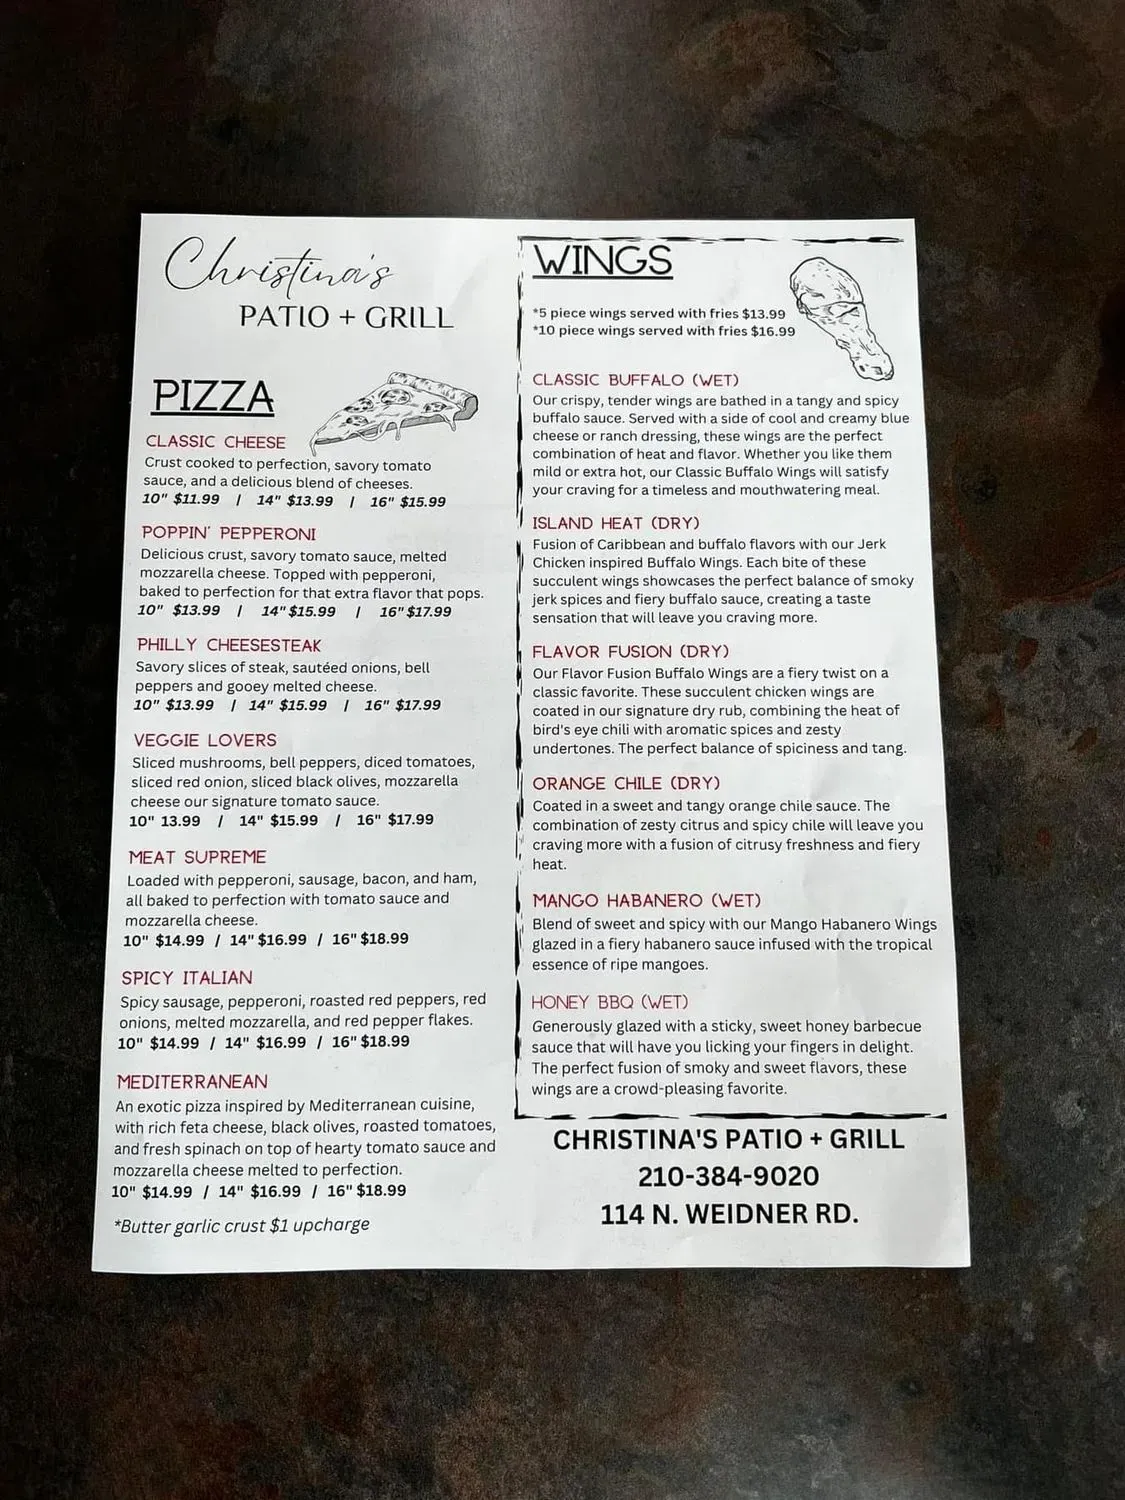 Christina's
PATIO + GRILL
PIZZA
CLASSIC CHEESE
Crust cooked to perfection, savory tomato
sauce, and a delicious blend of cheeses.
10" $11.99 / 14" $13.99 / 16" $15.99
POPPIN' PEPPERONI
Delicious crust, savory tomato sauce, melted
mozzarella cheese. Topped with pepperoni,
baked to perfection for that extra flavor that pops.
10" $13.99 / 14" $15.99 / 16" $17.99
PHILLY CHEESESTEAK
Savory slices of steak, sautéed onions, bell
peppers and gooey melted cheese.
10" $13.99 / 14" $15.99 / 16" $17.99
VEGGIE LOVERS
Sliced mushrooms, bell peppers, diced tomatoes,
sliced red onion, sliced black olives, mozzarella
cheese our signature tomato sauce.
10" 13.99 / 14" $15.99 / 16" $17.99
MEAT SUPREME
Loaded with pepperoni, sausage, bacon, and ham,
all baked to perfection with tomato sauce and
mozzarella cheese.
10" $14.99 / 14" $16.99 / 16" $18.99
SPICY ITALIAN
Spicy sausage, pepperoni, roasted red peppers, red
onions, melted mozzarella, and red pepper flakes.
10" $14.99 / 14" $16.99 / 16" $18.99
MEDITERRANEAN
An exotic pizza inspired by Mediterranean cuisine,
with rich feta cheese, black olives, roasted tomatoes,
and fresh spinach on top of hearty tomato sauce and
mozzarella cheese melted to perfection.
10" $14.99 / 14" $16.99 / 16" $18.99
*Butter garlic crust $1 upcharge
WINGS
*5 piece wings served with fries $13.99
*10 piece wings served with fries $16.99
CLASSIC BUFFALO (WET)
Our crispy, tender wings are bathed in a tangy and spicy
buffalo sauce. Served with a side of cool and creamy blue
cheese or ranch dressing, these wings are the perfect
combination of heat and flavor. Whether you like them
mild or extra hot, our Classic Buffalo Wings will satisfy
your craving for a timeless and mouthwatering meal.
ISLAND HEAT (DRY)
Fusion of Caribbean and buffalo flavors with our Jerk
Chicken inspired Buffalo Wings. Each bite of these
succulent wings showcases the perfect balance of smoky
jerk spices and fiery buffalo sauce, creating a taste
sensation that will leave you craving more.
FLAVOR FUSION (DRY)
Our Flavor Fusion Buffalo Wings are a fiery twist on a
classic favorite. These succulent chicken wings are
coated in our signature dry rub, combining the heat of
bird's eye chili with aromatic spices and zesty
undertones. The perfect balance of spiciness and tang.
ORANGE CHILE (DRY)
Coated in a sweet and tangy orange chile sauce. The
combination of zesty citrus and spicy chile will leave you
craving more with a fusion of citrusy freshness and fiery
heat.
MANGO HABANERO (WET)
Blend of sweet and spicy with our Mango Habanero Wings
glazed in a fiery habanero sauce infused with the tropical
essence of ripe mangoes.
HONEY BBQ (WET)
Generously glazed with a sticky, sweet honey barbecue
sauce that will have you licking your fingers in delight.
The perfect fusion of smoky and sweet flavors, these
wings are a crowd-pleasing favorite.
CHRISTINA'S PATIO + GRILL
210-384-9020
114 N. WEIDNER RD.